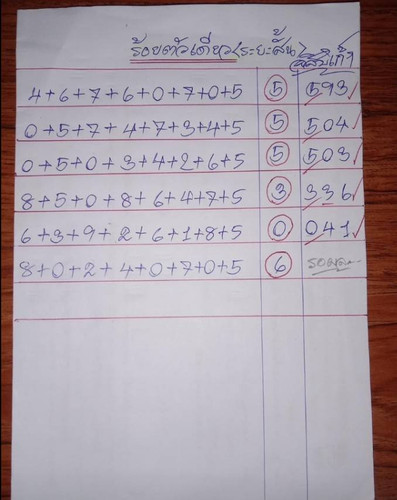 ร้อยตัวเดียว(ระยะสั้น)
สถิติเก่า
4+6+7+6+0+7+0+5 5 593
0+5+7+4+7+3+4+5 5 504
0+5+0+3+4+2+6+5 5 503
8+5+0+8+6+4+7+5 3 336
6+3+9+2+6+1+8+5 0 041
8+0+2+4+0+7+0+5 6 รอผล